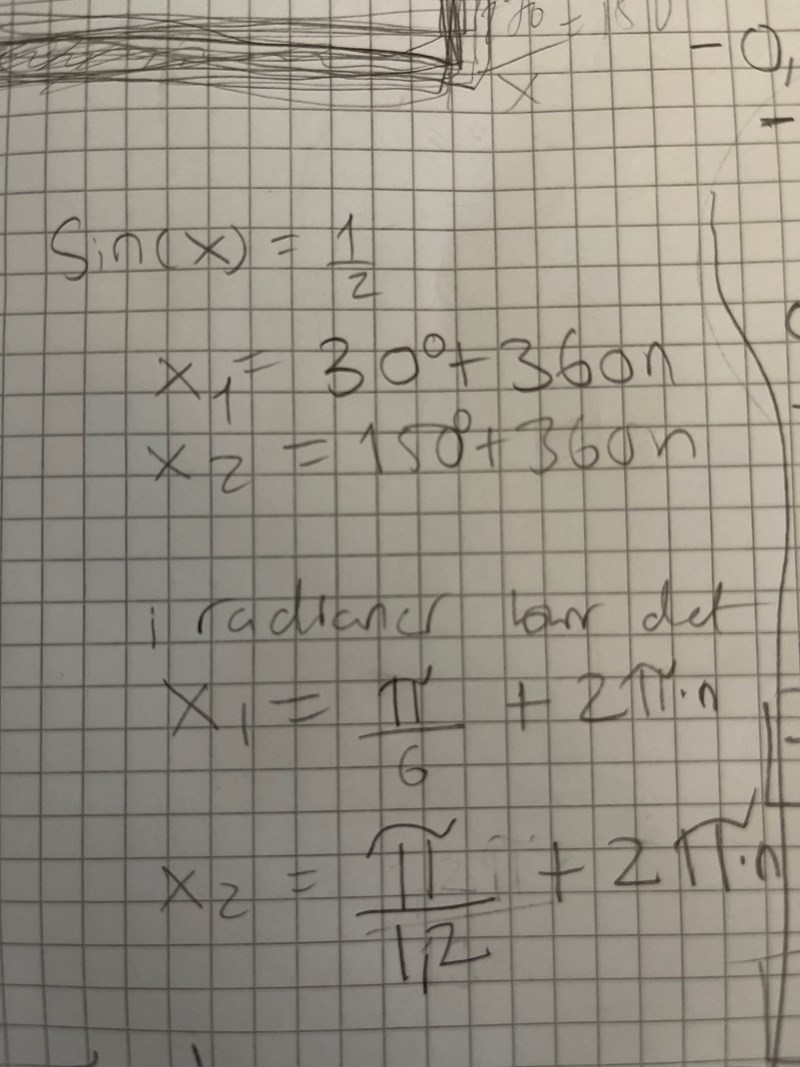 x
-0,
Sin(x) = 1/2
x₁ = 30° + 360n
x₂ = 150° + 360n
i radianer
det
x₁ = π/6 + 2π·n
x₂ = π/1,2 + 2π·n